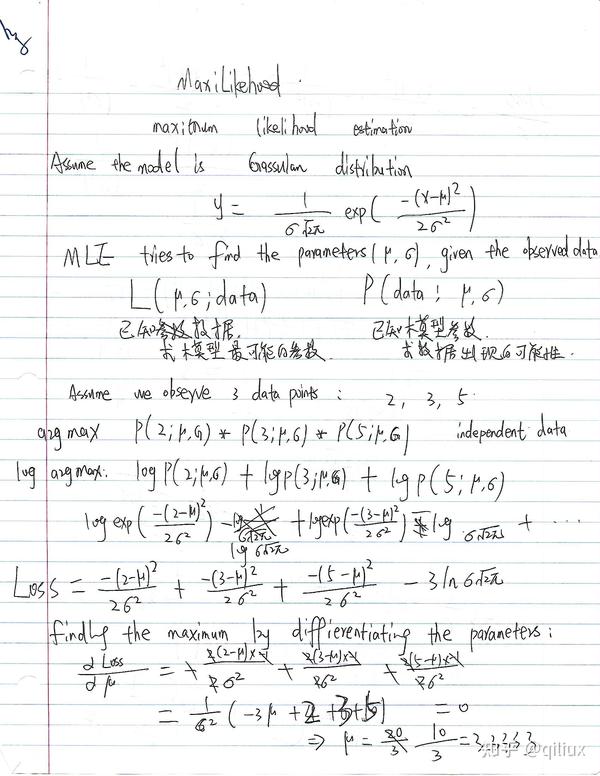 MaxiLikehood.
maximum likelihood estimation
Assume the model is Gassulan distribution
y = 1/(σ√2π) exp( -(x-μ)²/2σ² )
MLE tries to find the parameters(μ,σ), given the observed data
L(μ,σ;data)    P(data; μ,σ)
已知数据.    已知模型参数.
求模型最可能的参数.    求数据出现的可能性.
Assume we observe 3 data points : 2, 3, 5.
arg max P(2;μ,σ) * P(3;μ,σ) * P(5;μ,σ) independent data
log arg max: log P(2;μ,σ) + log P(3;μ,σ) + log P(5;μ,σ)
log exp( -(2-μ)²/2σ² ) - log σ√2π + log exp( -(3-μ)²/2σ² ) - log σ√2π + ...
Loss = -(2-μ)²/2σ² + -(3-μ)²/2σ² + -(5-μ)²/2σ² - 3 ln σ√2π
finding the maximum by diffierentiating the parameters :
d Loss/d μ = + 2(2-μ)x-1/2σ² + 2(3-μ)x-1/2σ² + 2(5-μ)x-1/2σ²
= 1/σ² (-3μ + 2 + 3 + 5) = 0
⇒ μ = 10/3 = 3.3333
知乎 @qitiux